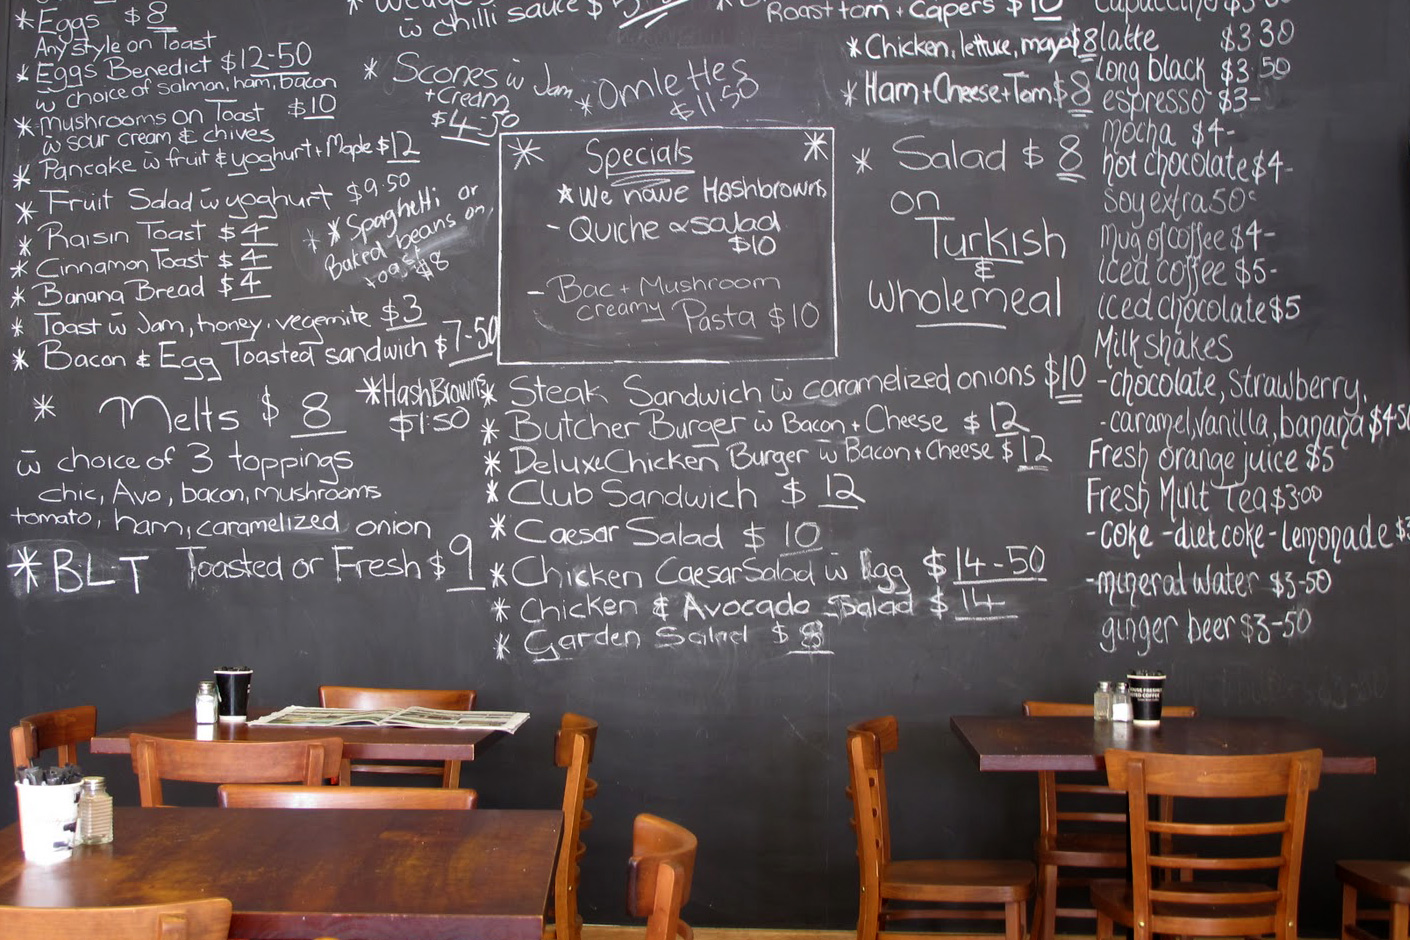 * Eggs $8
Any style on Toast
* Eggs Benedict $12-50
w̄ choice of salmon, ham, bacon
* Mushrooms on Toast $10
w̄ sour cream & chives
* Pancake w̄ fruit & yoghurt + Maple $12
* Fruit Salad w̄ yoghurt $9.50
* Raisin Toast $4
* Cinnamon Toast $4
* Banana Bread $4
* Toast w̄ Jam, honey, vegemite $3
* Bacon & Egg Toasted sandwich $7-50
* Spaghetti or
Baked beans on
toast $8
* HashBrowns
$1.50
* Melts $8
w̄ choice of 3 toppings
chic, Avo, bacon, mushrooms
tomato, ham, caramelized onion
* BLT Toasted or Fresh $9
w̄ chilli sauce $
* Scones w̄ Jam
+ Cream
$4-50
* Omlettes
$11.50
* Specials *
* We have Hashbrowns
- Quiche & salad
$10
- Bac + Mushroom
creamy Pasta $10
* Steak Sandwich w̄ caramelized onions $10
* Butcher Burger w̄ Bacon + Cheese $12
* Deluxe Chicken Burger w̄ Bacon + Cheese $12
* Club Sandwich $12
* Caesar Salad $10
* Chicken Caesar Salad w̄ Egg $14-50
* Chicken & Avocado Salad $14
* Garden Salad $8
Roast tom + Capers $10
* Chicken, lettuce, mayo $8
* Ham + Cheese + Tom $8
* Salad $8
on
Turkish
&
wholemeal
Capuccino
latte $3 30
long black $3.50
espresso $3-
Mocha $4-
hot chocolate $4-
Soy extra 50c
Mug of coffee $4-
Iced coffee $5-
iced chocolate $5
Milkshakes
- chocolate, Strawberry,
- caramel, Vanilla, banana $4-50
Fresh orange juice $5
Fresh Mint Tea $3.00
- coke - diet coke - Lemonade
- mineral water $3-50
ginger beer $3-50